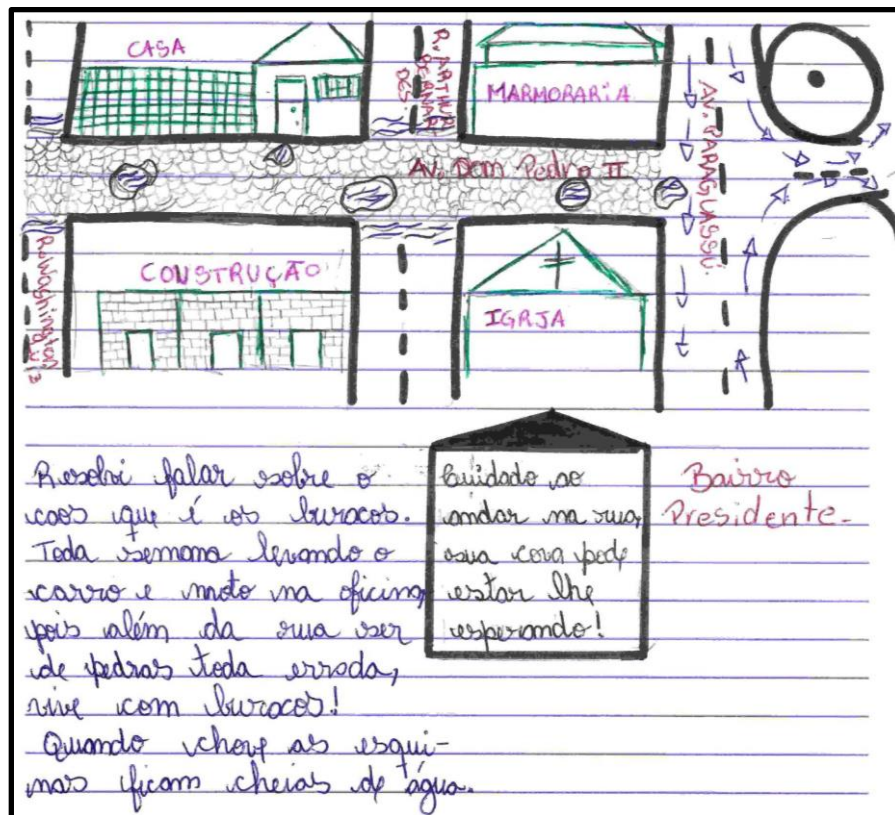 CASA
R. ARTHUR
BERNAR
DES
MARMORARIA
AV. PARAGUASSÚ.
Av. Dom Pedro II
R. Washington
Luiz
CONSTRUÇÃO
IGRJA
Resolvi falar sobre o
caos que é os buracos.
Toda semana levando o
carro e moto na oficina,
pois além da rua ser
de pedras toda errada,
vive com buracos!
Quando chove as esqui-
nas ficam cheias de água.
Cuidado ao
andar na rua,
sua cova pode
estar lhe
esperando!
Bairro
Presidente.